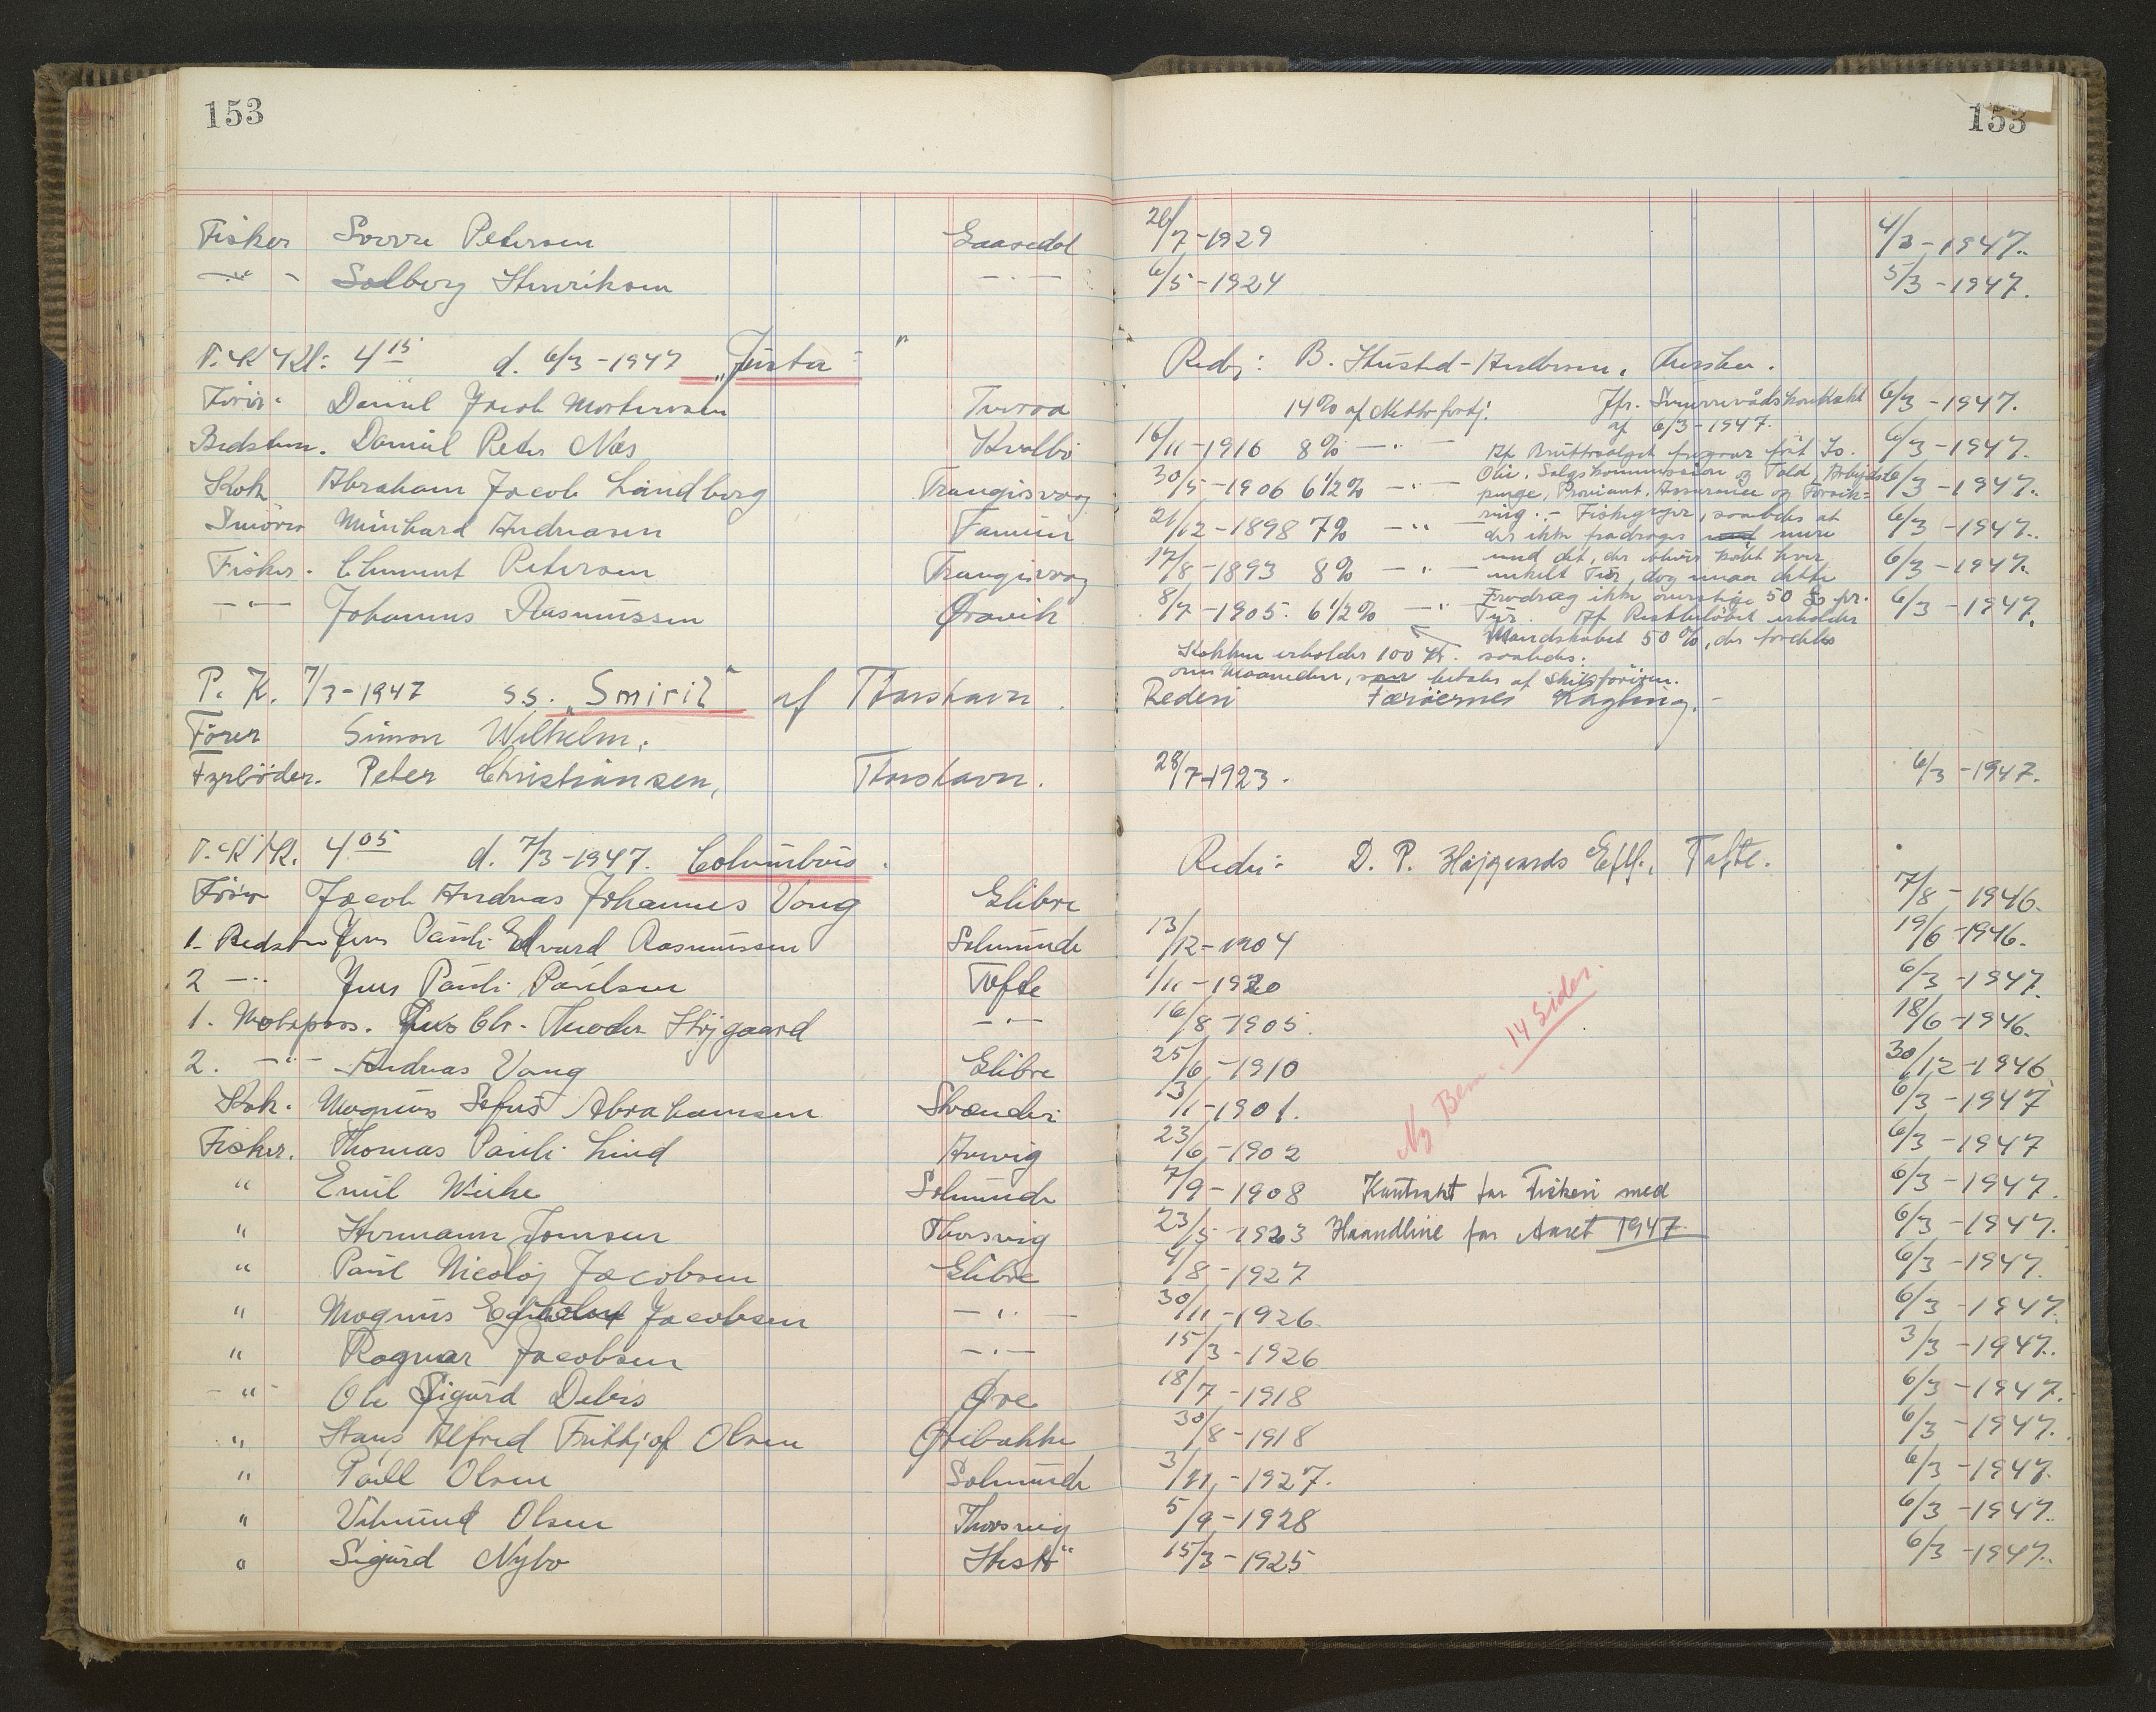 153 153
Fisker Sverre Petersen Gaasedal 26/7-1929 4/3-1947.
-"- Solberg Henriksen -"- 6/5-1924 5/3-1947.
T.K. Kl: 4 15 d. 6/3-1947 "Justa" Red.: B. Husted-Andersen,
Förer Daniel Jacob Mortensen Tveraa 14% af Nettofortj. Jfr. Snurrevådskontrakt 6/3-1947.
af 6/3-1947.
Bedstem. Daniel Peter Næs Kvalbö 16/11-1916 8% -"- Af Bruttosalget fragaar först Is. 6/3-1947.
Kok Abraham Jacob Lindberg Trangisvaag 30/5-1906 6 1/2% -"- Olie, Salgskommission og Told, Arbejds- 6/3-1947.
penge, Proviant, Assurance og Forsik-
Smörer Meinhard Andreasen Famien 21/12-1898 7% -"- ring. - Fiskegrejer, saaledes at 6/3-1947.
der ikke fradrages mere
Fisker. Clement Petersen Trangisvaag 17/8-1893 8% -"- end det, der bliver købt hver 6/3-1947.
enkelt Tur, dog maa dette
-"- Johannes Rasmussen Øravik 8/7-1905. 6 1/2% -"- Fradrag ikke overstige 50 £ pr. 6/3-1947.
Tur. Af Restbeløbet erholder
Mandskabet 50%, der fordeles
Kokken erholder 100 Kr. saaledes:
om Maaneden, betales af Skibsföreren.
P. K. 7/3-1947 S.S. "Smiril" af Thorshavn. Rederi Færöernes Kagling.-
Förer Simon Wilhelm,
Fyrböder. Peter Christiansen, Thorshavn. 28/7-1923. 6/3-1947.
T.K. Kl. 4 05 d. 7/3-1947. Columbus. Rederi: D. P. Højgaards Eftf., Tofte.
Förer Jacob Andreas Johannes Vang Glibre 7/8-1946.
1. Bedstem Jens Pauli Edvard Rasmussen Solmunde 13/12-1904 19/6-1946.
2 -"- Jens Pauli Poulsen Tofte 1/11-1920 6/3-1947.
1. Motorpass. Jens Chr. Theodor Höjgaard -"- 16/8-1905. 18/6-1946.
2. -"- Andreas Vang Glibre 25/6-1910 30/12-1946
Kok. Magnus Sofus Abrahamsen Skaonder 13/11-1901. 6/3-1947
Fisker. Thomas Pauli Lind Arnvig 23/6-1902 6/3-1947
" Emil Weihe Solmunde 7/9-1908 Kontrakt for Fiskeri med 6/3-1947.
" Hermann Joensen Thorsvig 23/5-1923 Haandline for Aaret 1947. 6/3-1947.
" Poul Nicolaj Jacobsen Glibre 4/8-1927 6/3-1947.
" Magnus Egholm Jacobsen -"- 30/11-1926. 6/3-1947.
" Ragnar Jacobsen -"- 15/3-1926 3/3-1947.
-"- Ole Sigurd Debes Øre 18/7-1918 6/3-1947.
" Hans Alfred Frithjof Olsen Gribakke 30/8-1918 6/3-1947.
" Poull Olsen Solmunde 3/11-1927. 6/3-1947.
" Vilmund Olsen Thorsvig 5/9-1928 6/3-1947.
" Sigurd Nybo Hestö 15/3-1925 6/3-1947.
Ny Bem. 14 Sider.